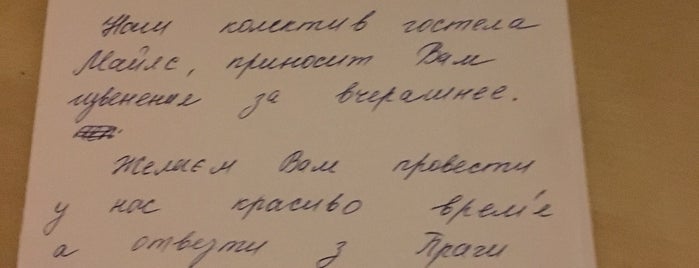 Наш колектив гостела
Майлс, приносит Вам
извенения за вчерашнее.
Желаєм Вам провести
у нас красиво врем'е
а отвезти з Праги